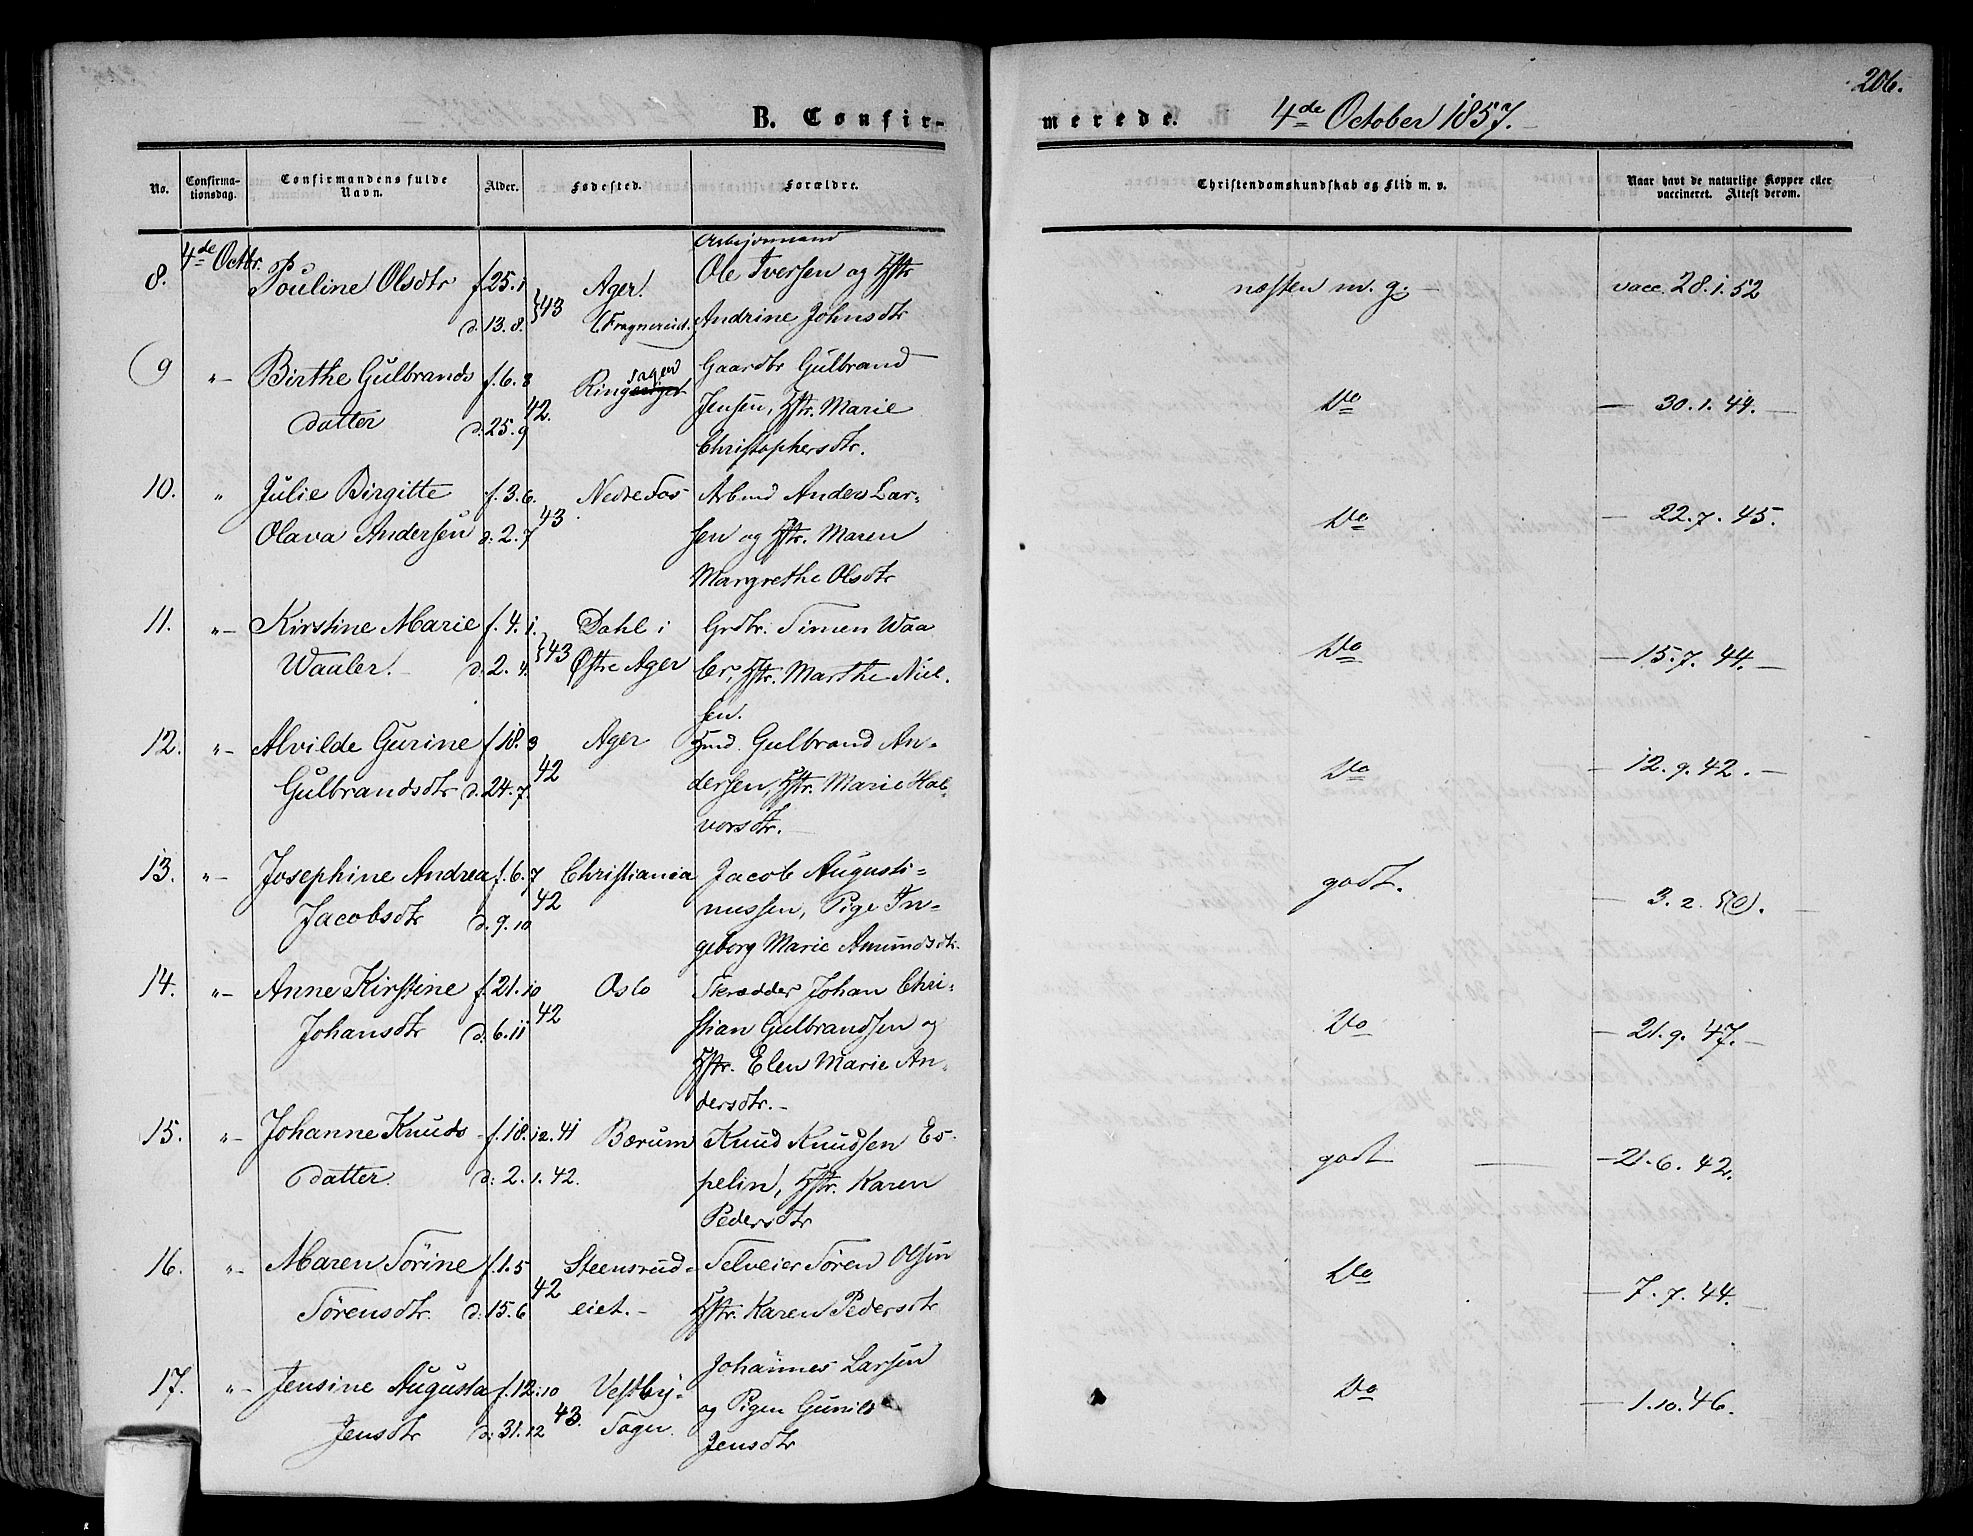 206.
B. Confir-
merede.
4de October 1857.
No.
Confirma-
tionsdag.
Confirmandens fulde
Navn.
Alder.
Fødested.
Forældre.
Christendomskundskab og Flid m. v.
Naar havt de naturlige Kopper eller
vaccineret. Attest derom.
4de Octbr.
8. Pouline Olsdtr f. 25.1 d. 13.8. 43 Ager.
Arbejdsmand
Ole Iversen og Hstr
Andrine Johnsdtr
næsten m. g. vacc. 28.1.52
9 "- Birthe Gulbrands
datter f. 6.8 d. 25.9 42. Ringsager
Gaardbr Gulbrand
Jensen, Hstr. Marie
Christophersdtr.
Do - 30.1.44. -
10. " Julie Birgitte
Olava Andersen f. 3.6. d. 2.7 43 Nedre Fos
Arbmd Anders Lar-
sen og Hstr. Maren
Margrethe Olsdtr
Do - 22.7.45.
11. "- Kirstine Marie
Waaler. f. 4.1. d. 2.4. 43 Dahl i
Østre Ager
Grdbr. Simen Waa
ler, Hstr. Marthe Niel-
sen.
Do - 15.7.44. -
12. "- Alvilde Gurine
Gulbrandsdtr f. 18.3 d. 24.7. 42 Ager
Hmd. Gulbrand An-
dersen, Hstr. Marie Hal-
vorsdtr.
Do - 12.9.42. -
13. "- Josephine Andrea
Jacobsdtr f. 6.7 d. 9.10 42 Christiania
Jacob Augusti-
nussen, Pige In-
geborg Marie Amundsdtr.
godt. - 3.2.50. -
14. "- Anne Kirstine
Johansdtr f. 21.10 d. 6.11 42 Oslo
Skrædder Johan Chri-
stian Gulbrandsen og
Hstr. Elen Marie An-
dersdtr. -
Do - 21.9.47. -
15. "- Johanne Knuds
datter. f. 18.12.41 d. 2.1.42. Bærum
Knud Knudsen Es-
pelin, Hstr. Karen
Pedersdtr
godt - 21.6.42.
16. "- Maren Sörine
Sörensdtr. f. 1.5 d. 15.6 42 Steensrud-
eiet. -
Selveier Sören Olsen
Hstr. Karen Pedersdtr
Do - 7.7.44. -
17. "- Jensine Augusta
Jensdtr f. 12.10 d. 31.12 43. Vestby-
Sogn.
Johannes Larsen
og Pigen Gunild
Jensdtr
Do - 1.10.46. -